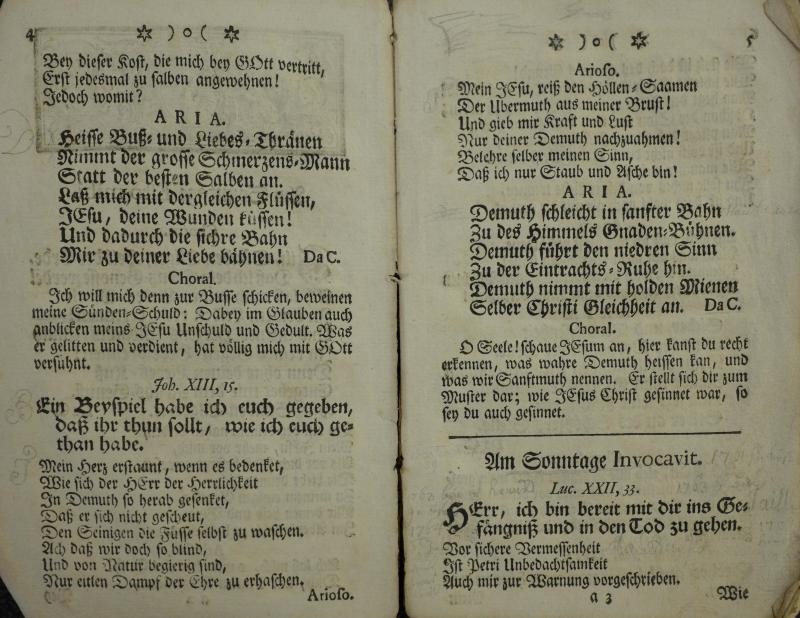 4 ✡ ) o ( ✡
Bey dieser Kost, die mich bey GOtt vertritt,
Erst jedesmal zu salben angewehnen!
Jedoch womit?
ARIA.
Heisse Buß- und Liebes-Thränen
Nimmt der grosse Schmerzens-Mann
Statt der besten Salben an.
Laß mich mit dergleichen Flüssen,
JEsu, deine Wunden küssen!
Und dadurch die sichre Bahn
Mir zu deiner Liebe bähnen! Da C.
Choral.
Ich will mich denn zur Busse schicken, beweinen
meine Sünden-Schuld: Dabey im Glauben auch
anblicken meins JEsu Unschuld und Gedult. Was
er gelitten und verdient, hat völlig mich mit GOtt
versühnt.
Joh. XIII, 15.
Ein Beyspiel habe ich euch gegeben,
daß ihr thun sollt, wie ich euch ge-
than habe.
Mein Herz erstaunt, wenn es bedenket,
Wie sich der HErr der Herrlichkeit
In Demuth so herab gesenket,
Daß er sich nicht gescheut,
Den Seinigen die Füsse selbst zu waschen.
Ach daß wir doch so blind,
Und von Natur begierig sind,
Nur eitlen Dampf der Ehre zu erhaschen.
Arioso.
✡ ) o ( ✡ 5
Arioso.
Mein JEsu, reiß den Höllen-Saamen
Der Ubermuth aus meiner Brust!
Und gieb mir Kraft und Lust
Nur deiner Demuth nachzuahmen!
Belehre selber meinen Sinn,
Daß ich nur Staub und Asche bin!
ARIA.
Demuth schleicht in sanfter Bahn
Zu des Himmels Gnaden-Bühnen.
Demuth führt den niedren Sinn
Zu der Eintrachts-Ruhe hin.
Demuth nimmt mit holden Mienen
Selber Christi Gleichheit an. Da C.
Choral.
O Seele! schaue JEsum an, hier kanst du recht
erkennen, was wahre Demuth heissen kan, und
was wir Sanftmuth nennen. Er stellt sich dir zum
Muster dar; wie JEsus Christ gesinnet war, so
sey du auch gesinnet.
Am Sonntage Invocavit.
Luc. XXII, 33.
HErr, ich bin bereit mit dir ins Ge-
fängniß und in den Tod zu gehen.
Vor sichere Vermessenheit
Ist Petri Unbedachtsamkeit
Auch mir zur Warnung vorgeschrieben.
a 3 Wie